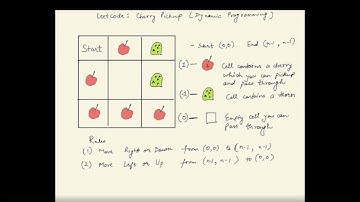 Leetcode: Cherry Pickup [Dynamic Programming]
Start
- Start (0,0) End (n-1, n-1)
(1) - Cell contains a cherry
which you can pickup
and pass through
(-1) - Cell contains a thorn
(0) - Empty cell you can
pass through
Rules
(1) Move Right or Down from (0,0) to (n-1, n-1)
(2) Move Left or Up from (n-1, n-1) to (0,0)